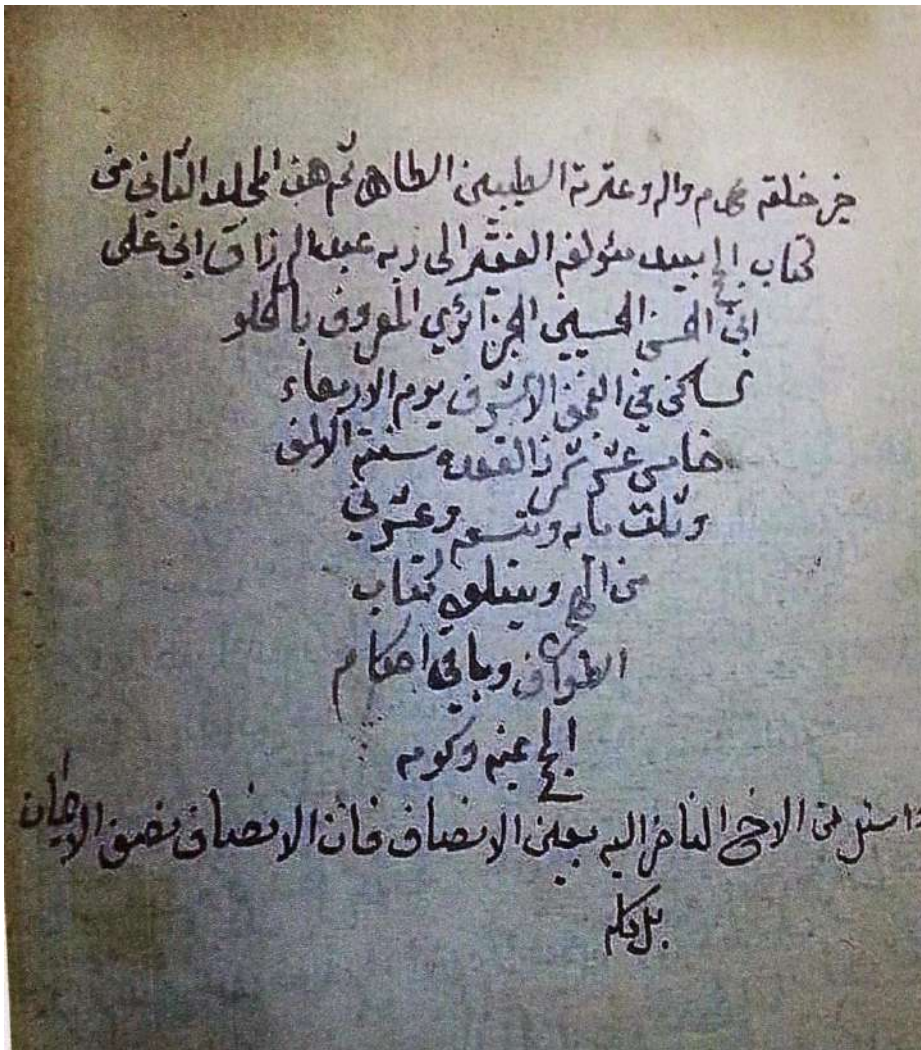 خير خلقه محمد واله وعترته الطيبين الطاهر تم هذا المجلد الثاني من
كتاب الحج بيد مؤلفه الفقير الى ربه عبد الرزاق ابن علي
ابن الحسن الحسيني الجزائري المعروف بالحلو
ساكن في النجف الاشرف يوم الاربعاء
خامس عشر شهر ذالقعده سنة الالف
وثلث مايه وتسعه وعشرين
من الهجره ويتلوه كتاب
الطواف وباقي احكام
الحج بمنه وكرمه
واسئل من الاخ الناظر اليه بعين الانصاف فان الانصاف نصف الايمان
بل كله